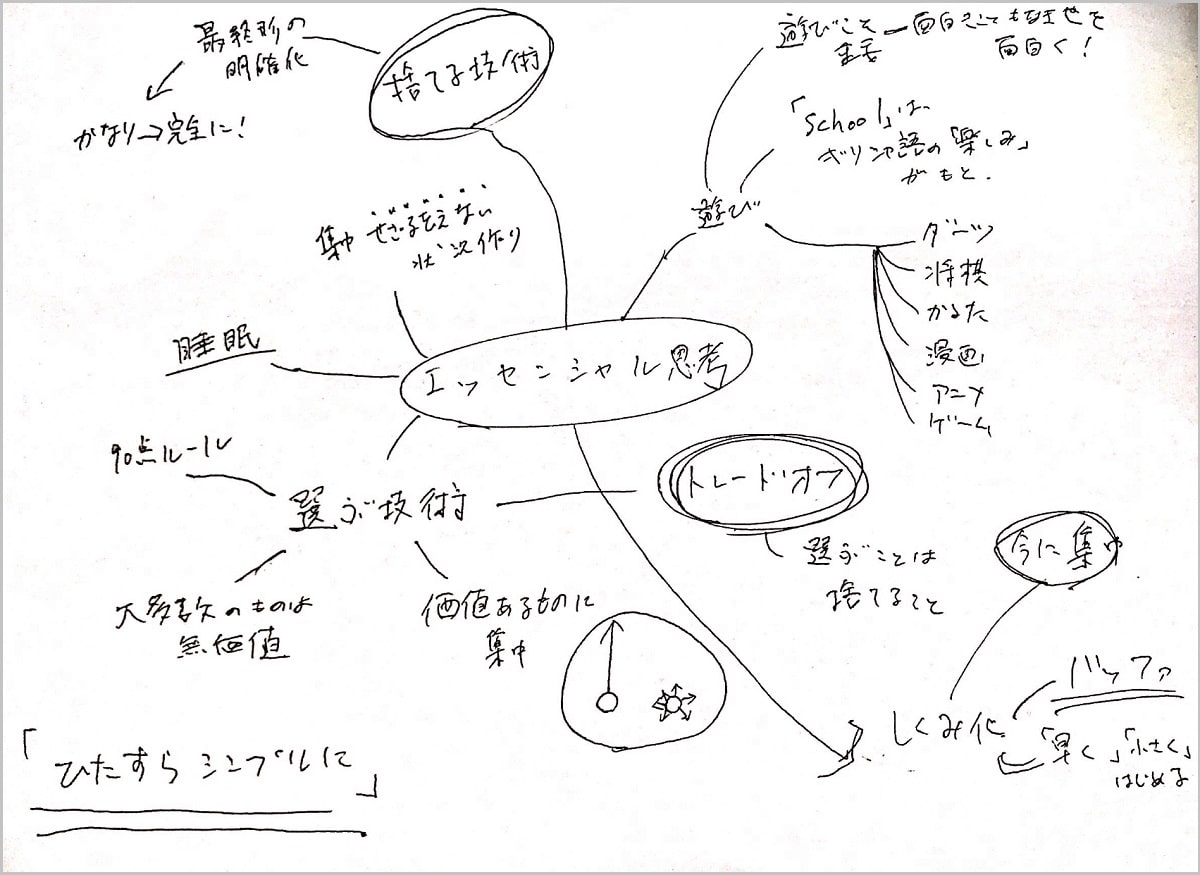 最終形の
明確化
かなり→完全に!
捨てる技術
遊びこそ
面白きこともなき世を
面白く!
「School」は
ギリシャ語の「楽しみ」
がもと.
遊び
ダーツ
将棋
かるた
漫画
アニメ
ゲーム
集中せざるをえない
状況作り
睡眠
エッセンシャル思考
90点ルール
選ぶ技術
トレードオフ
選ぶことは
捨てること
今に集中
大多数のものは
無価値
価値あるものに
集中
しくみ化
バッファ
「早く」「小さく」
はじめる
「ひたすらシンプルに」